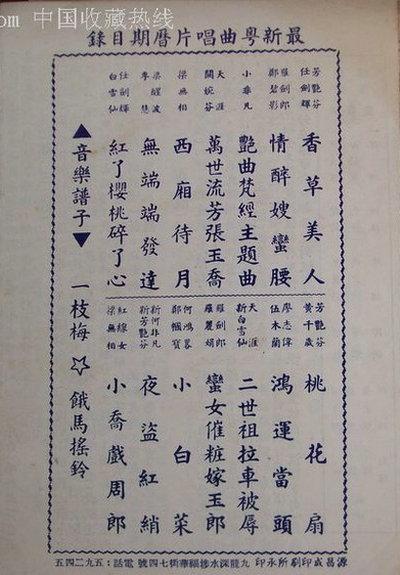 .com 中国收藏热线
最新粵曲唱片曆期目錄
芳艷芬
任劍輝
香草美人
羅劍郎
鄭碧影
情醉嫂蠻腰
小非凡
艷曲梵經主題曲
天涯
關婉芬
萬世流芳張玉喬
梁無相
西廂待月
梁醒波
李慧
無端端發達
任劍輝
白雪仙
紅了櫻桃碎了心
芳艷芬
黃千歲
桃花扇
廖志偉
伍木蘭
鴻運當頭
天涯
新白雪仙
二世祖拉車被辱
羅劍郎
羅麗娟
蠻女催粧嫁玉郎
何鴻畧
鄭幗寶
小白菜
新何非凡
新芳艷芬
夜盜紅綃
紅線女
梁無相
小喬戲周郎
▲音樂譜子▼ 一枝梅 ☆ 餓馬搖鈴
源昌成印刷所承印 九龍深水埗福華街七四號 電話：五九二四五